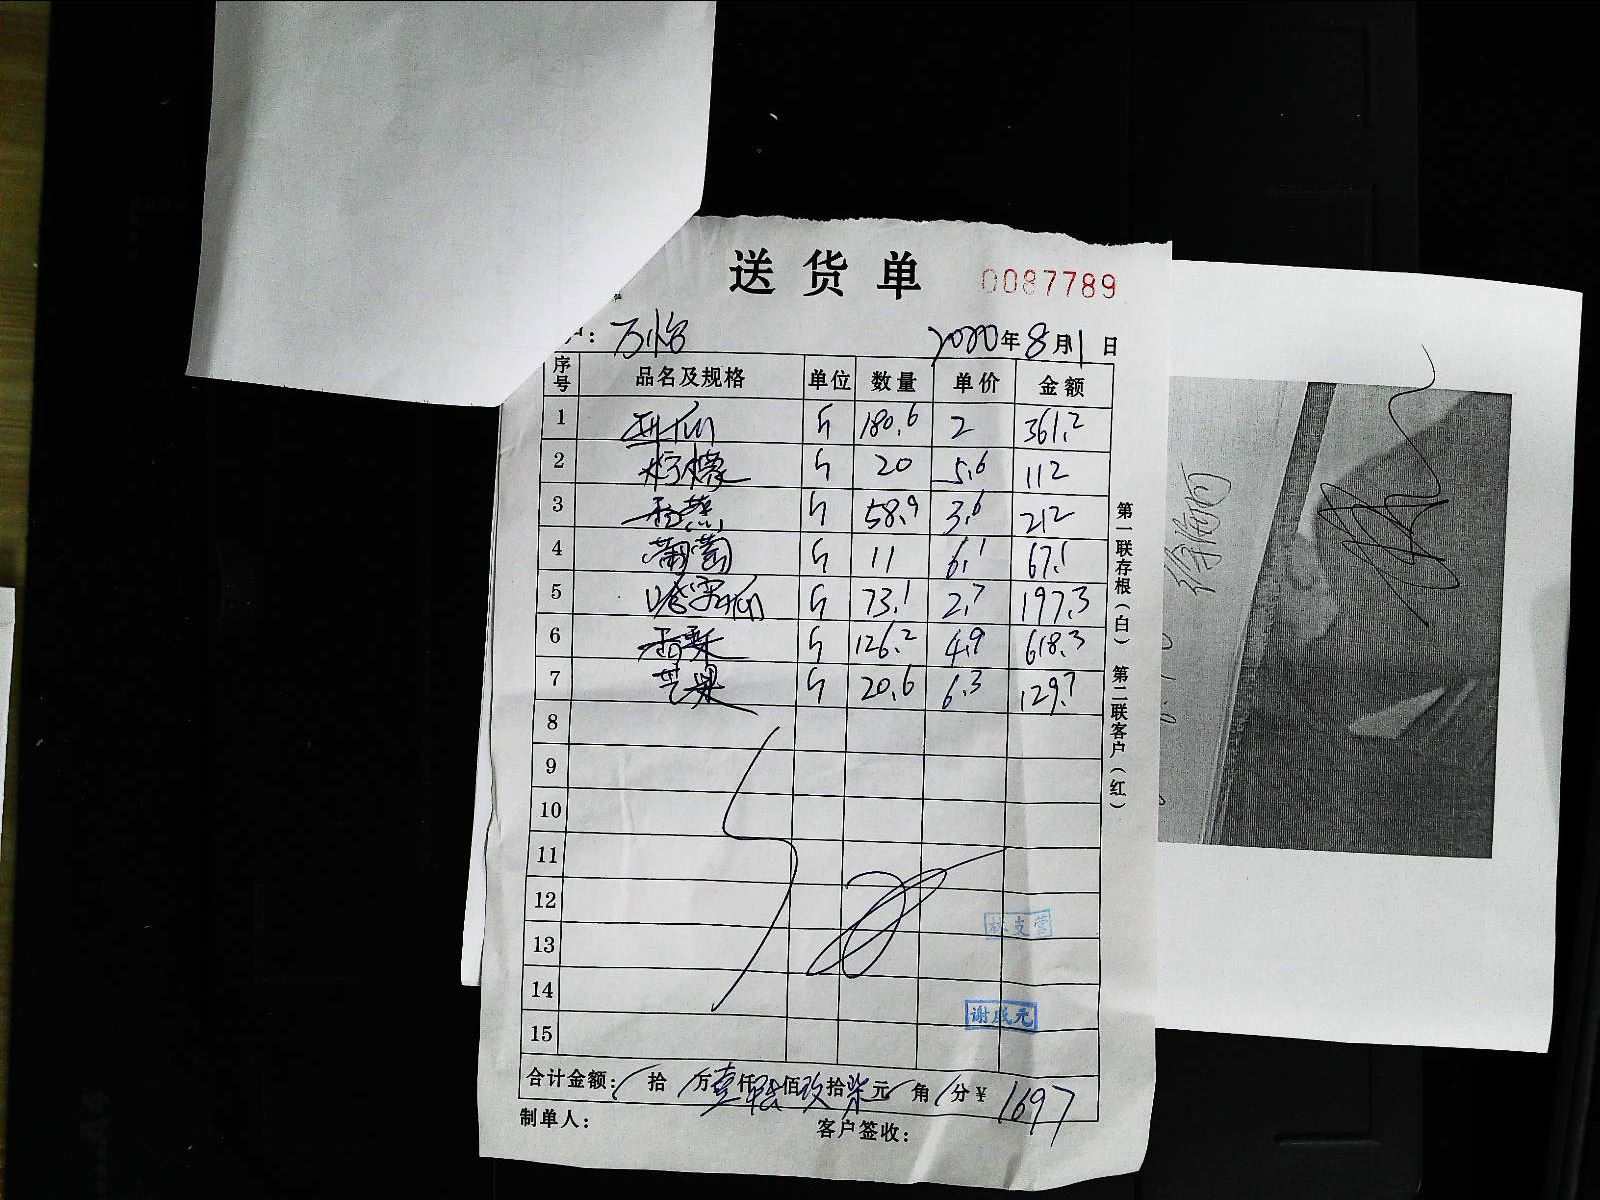 送货单 0087789
户: 万怡 2020年8月1日
序号 品名及规格 单位 数量 单价 金额
1 斤 180.6 2 361.2
2 柠檬 斤 20 5.6 112
3 香蕉 斤 58.9 3.6 212
4 葡萄 斤 11 6.1 67.1
5 哈密瓜 斤 73.1 2.7 197.3
6 香梨 斤 126.2 4.9 618.3
7 芒果 斤 20.6 6.3 129.7
8
9
10
11
12
13
14
15
林支营
谢成元
合计金额: 拾 万壹仟陆佰玖拾柒元 角 分¥ 1697
制单人: 客户签收:
第一联存根(白) 第二联客户(红)
A4